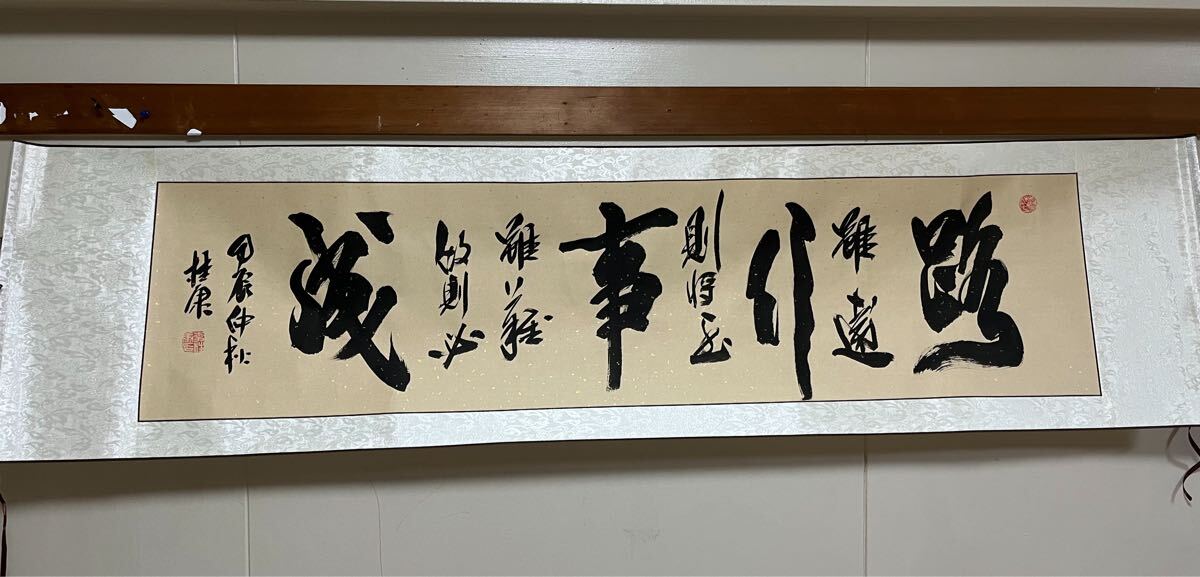 路
雖遠
行
則將至
事
雖難
做則必
成
甲辰仲秋
桂康